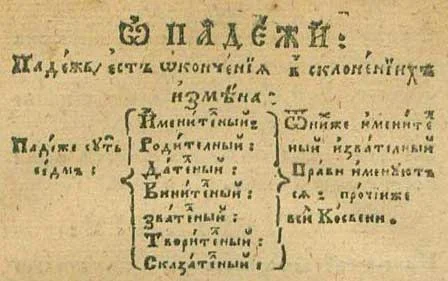 Ѿ ПАДЕ́ЖИ:
Паде́жъ є́стъ ѡ҆конче́нїѧ в̾ склоне́нїихъ
и҆змѣ́на:
Паде́же сꙋ́ть
се́дмь:
И҆мени́тєⷧ҇ный:
Роди́телный:
Да́тєⷧ҇ный:
Вини́тєⷧ҇ный:
Зва́тєⷧ҇ный:
Твори́тєⷧ҇ный:
Сказа́тєⷧ҇ный:
Ѿ ни́хже и҆мени́тєⷧ҇
ный и҆ зва́телный
Пра́ви и҆менꙋ́ютъ
сѧ: про́чїиже
всѝ Ко́свени.